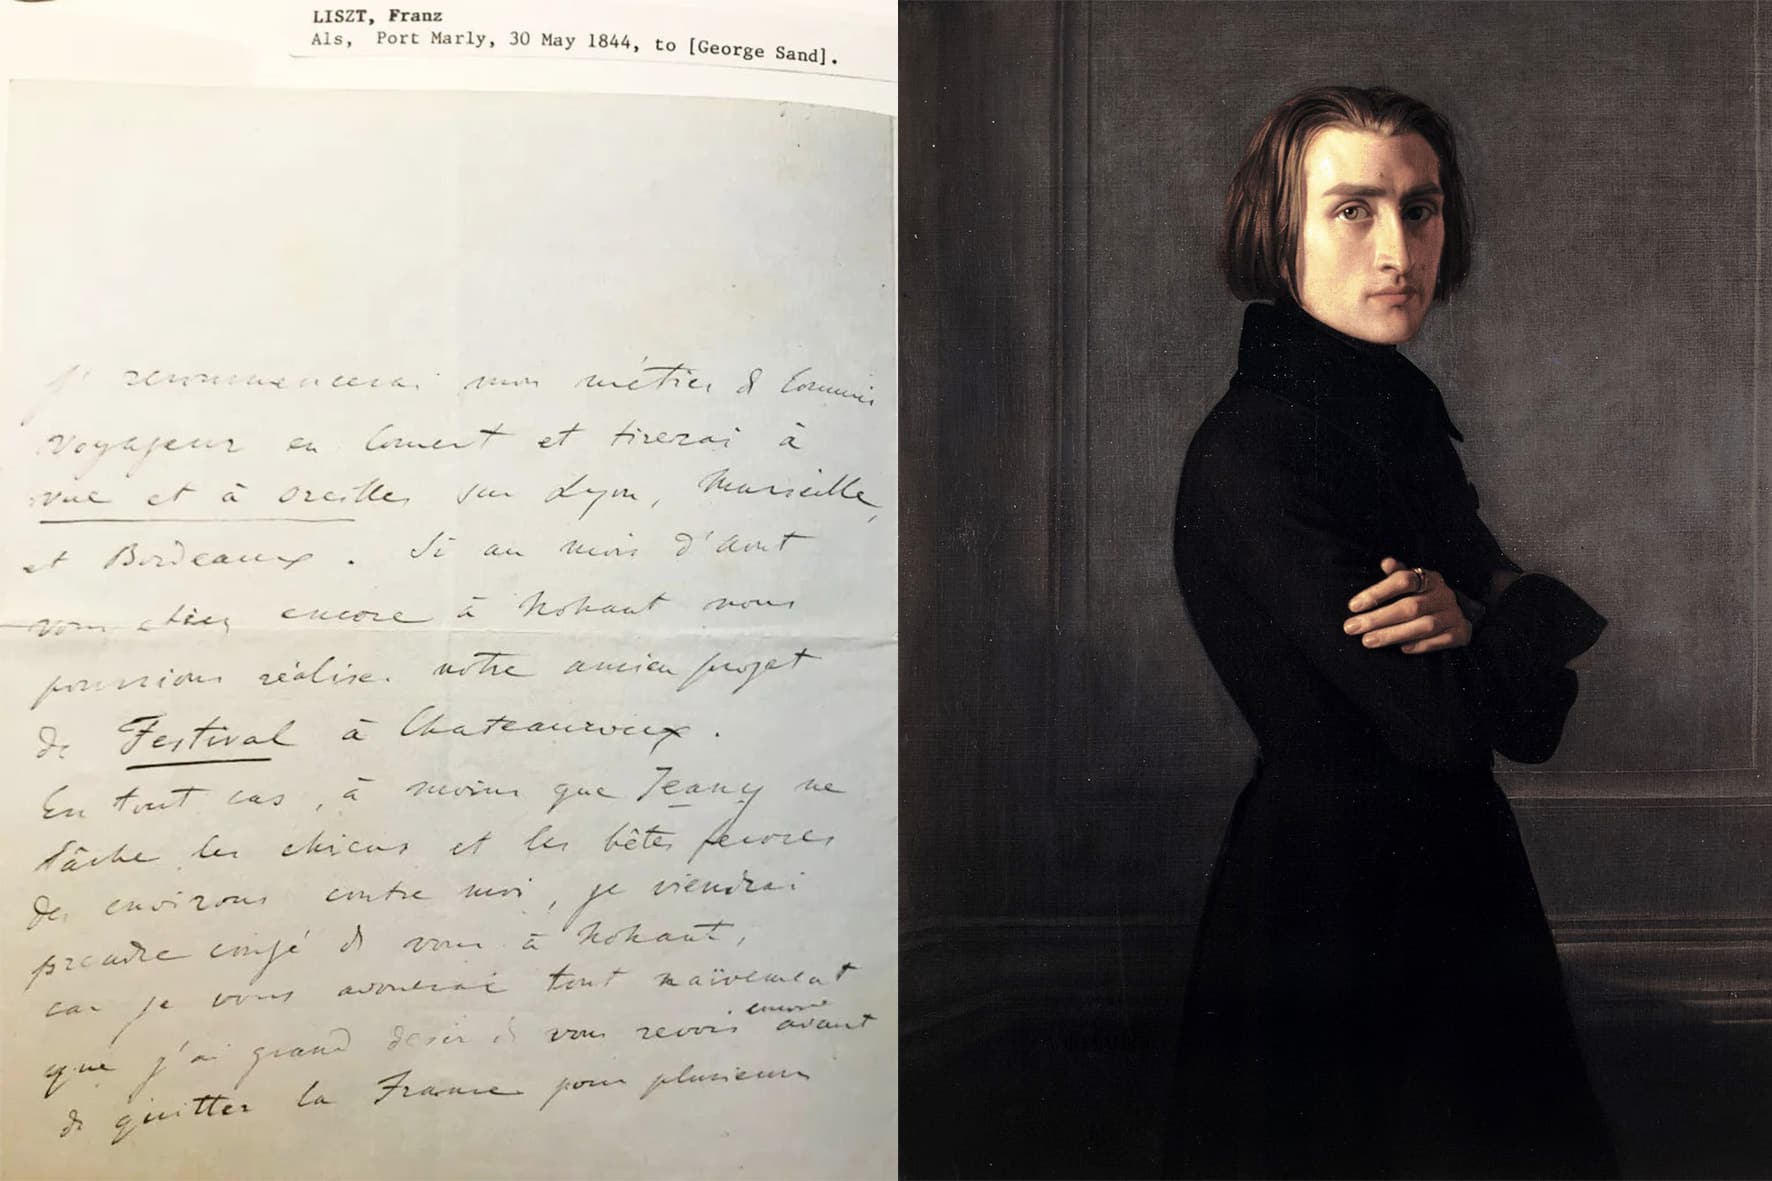 LISZT, Franz
Als, Port Marly, 30 May 1844, to [George Sand].
je recommencerai mon métier de Commis
voyageur en Concert et tirerai à
vue et à oreilles sur Lyon, Marseille,
et Bordeaux. Si au mois d'Aout
vous étiez encore à Nohant nous
pourrions réaliser notre ancien projet
de Festival à Chateauroux.
En tout cas, à moins que Jeany ne
lâche les chiens et les bêtes feroces
des environs contre moi, je viendrai
prendre congé de vous à Nohant,
car je vous avouerai tout naïvement
que j'ai grand desir de vous revoir encore avant
de quitter la France pour plusieurs